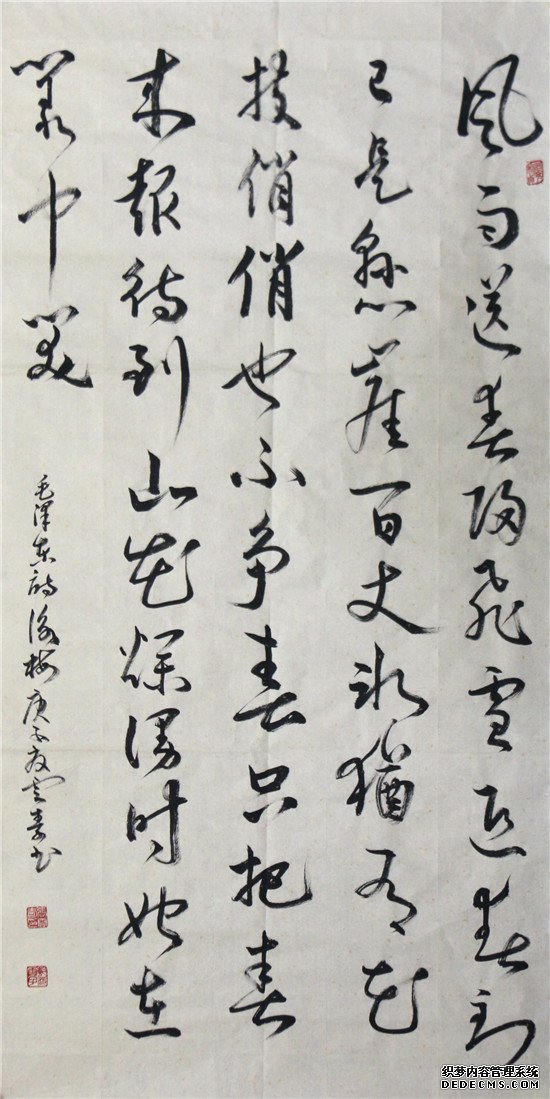 风雨送春归飞雪迎春到
已是悬崖百丈冰犹有花
枝俏俏也不争春只把春
来报待到山花烂漫时她在
丛中笑
毛泽东词咏梅庚子
织梦内容管理系统
DEDECMS.COM